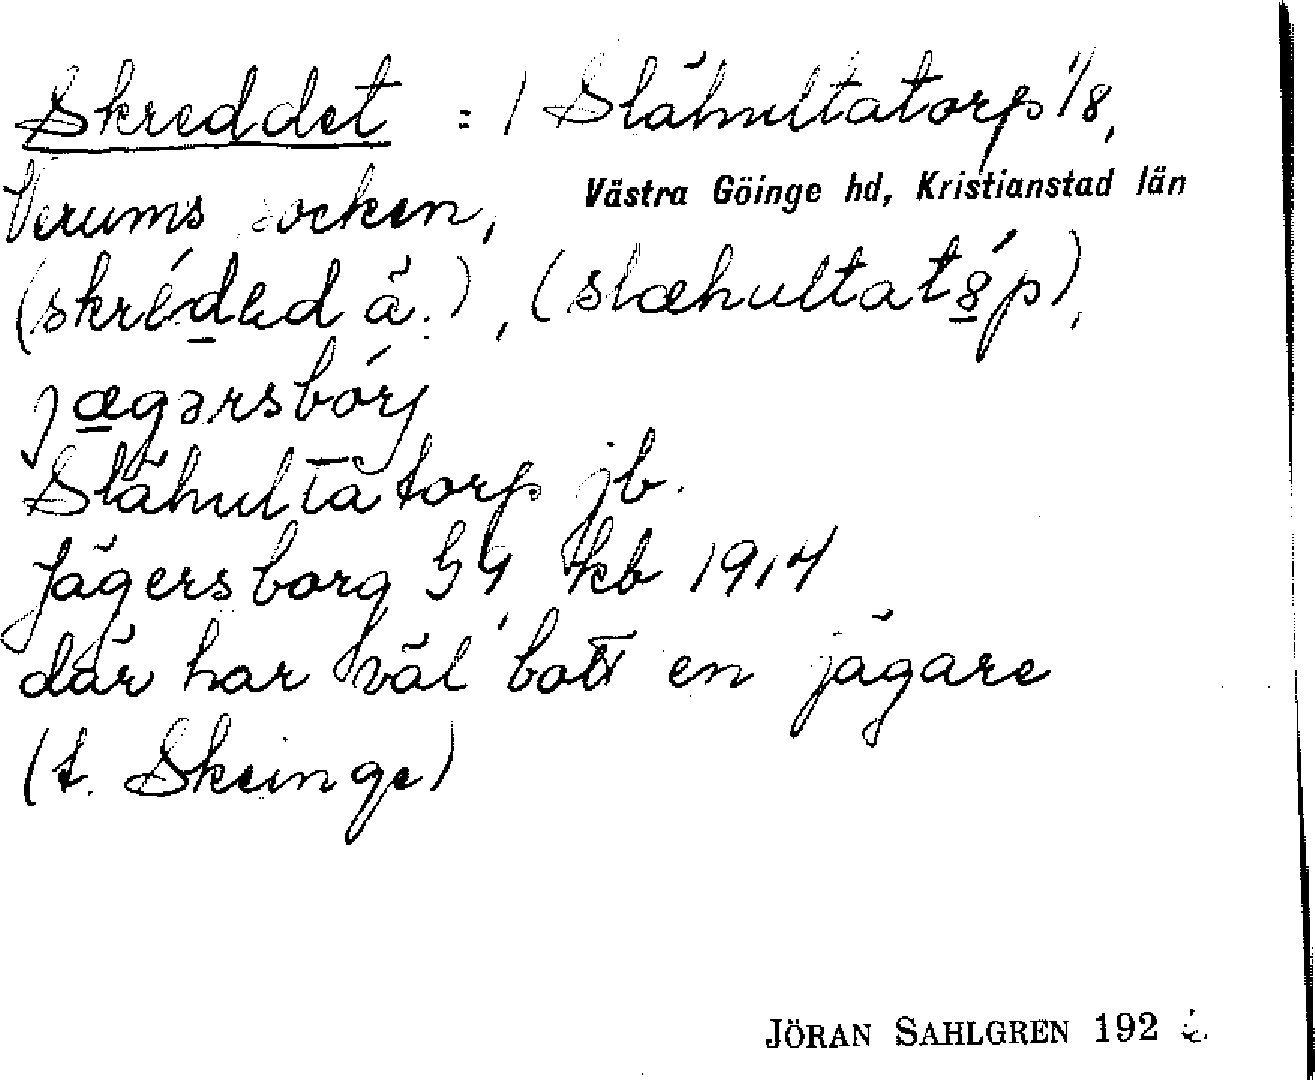 Skreddet = 1 Slähultatorp 1/8,
Verums socken, Västra Göinge hd, Kristianstad län
(skréded ä.), (slæhultatɘ́p),
jægərsbórj
Slähultatorp jb.
Jägersborg G4 kb 1914
där har väl bott en jägare
(t. Skeinge)
JÖRAN SAHLGREN 192